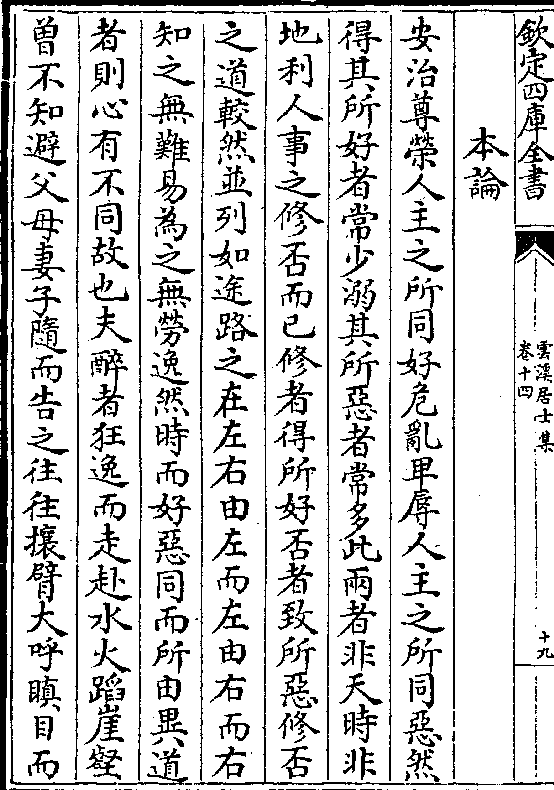 欽定四庫全書
雲溪居士集
卷十四
十九
本論
安治尊榮人主之所同好危亂卑辱人主之所同惡然
得其所好者常少溺其所惡者常多此兩者非天時非
地利人事之修否而已修者得所好否者致所惡修否
之道較然並列如途路之在左右由左而左由右而右
知之無難易為之無勞逸然時而好惡同而所由異道
者則心有不同故也夫醉者狂逸而走赴水火蹈崖壑
曽不知避父母妻子隨而告之往往攘臂大呼瞋目而